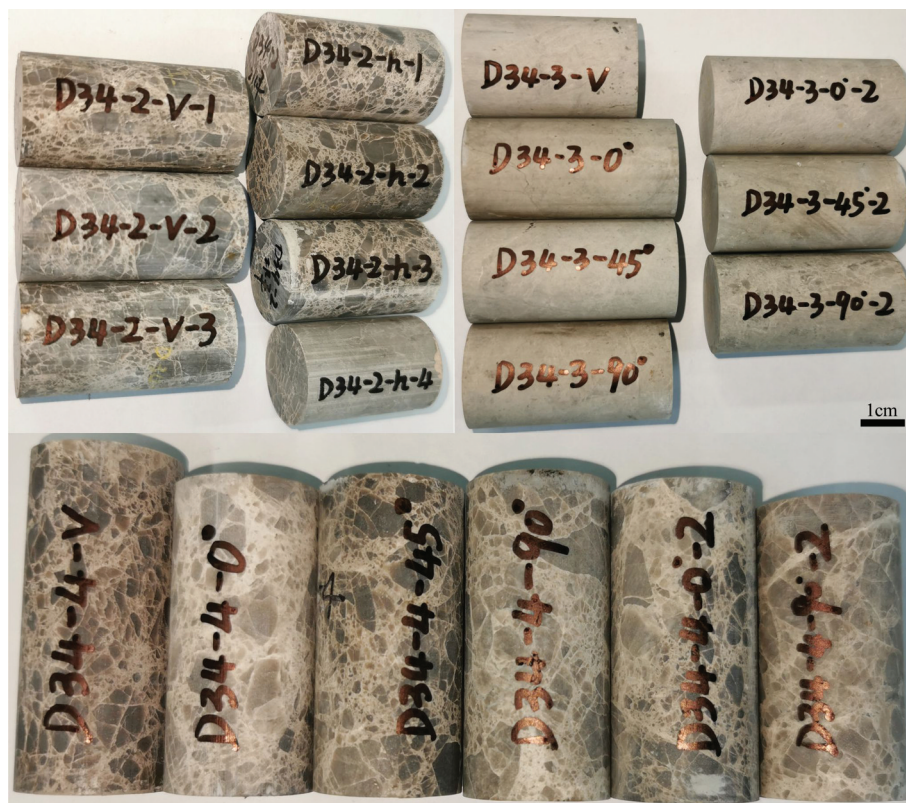 D34-2-V-1
D34-2-V-2
D34-2-V-3
D34-2-h-1
D34-2-h-2
D34-2-h-3
D34-2-h-4
D34-3-V
D34-3-0°
D34-3-45°
D34-3-90°
D34-3-0°-2
D34-3-45°-2
D34-3-90°-2
1cm
D34-4-V
D34-4-0°
D34-4-45°
4
D34-4-90°
D34-4-0°-2
D34-4-90°-2